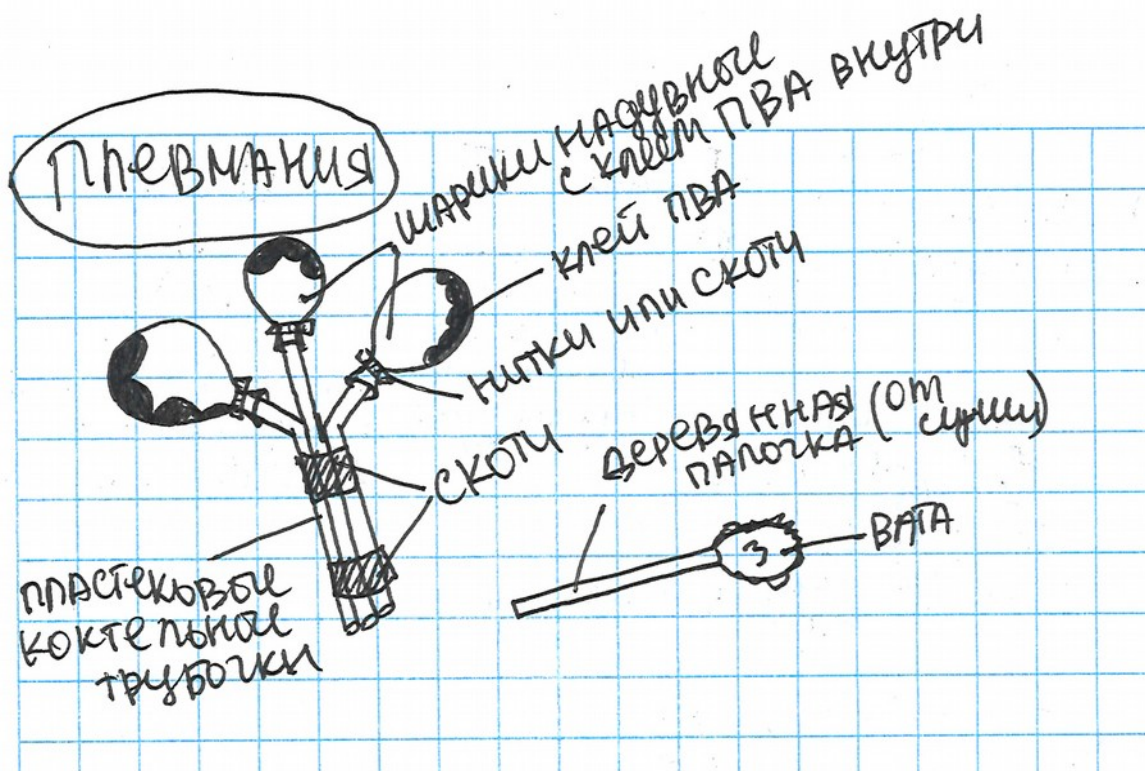 ПЛЕВМАНИЯ
ШАРИКИ НАДУВНЫЕ
С КЛЕЕМ ПВА ВНУТРИ
КЛЕЙ ПВА
НИТКИ ИЛИ СКОТЧ
СКОТЧ
ДЕРЕВЯННАЯ (ОТ
ПАЛОЧКА СУШИ)
З
ВАТА
ПЛАСТЕКОВЫЕ
КОКТЕЛЬНЫЕ
ТРУБОЧКИ